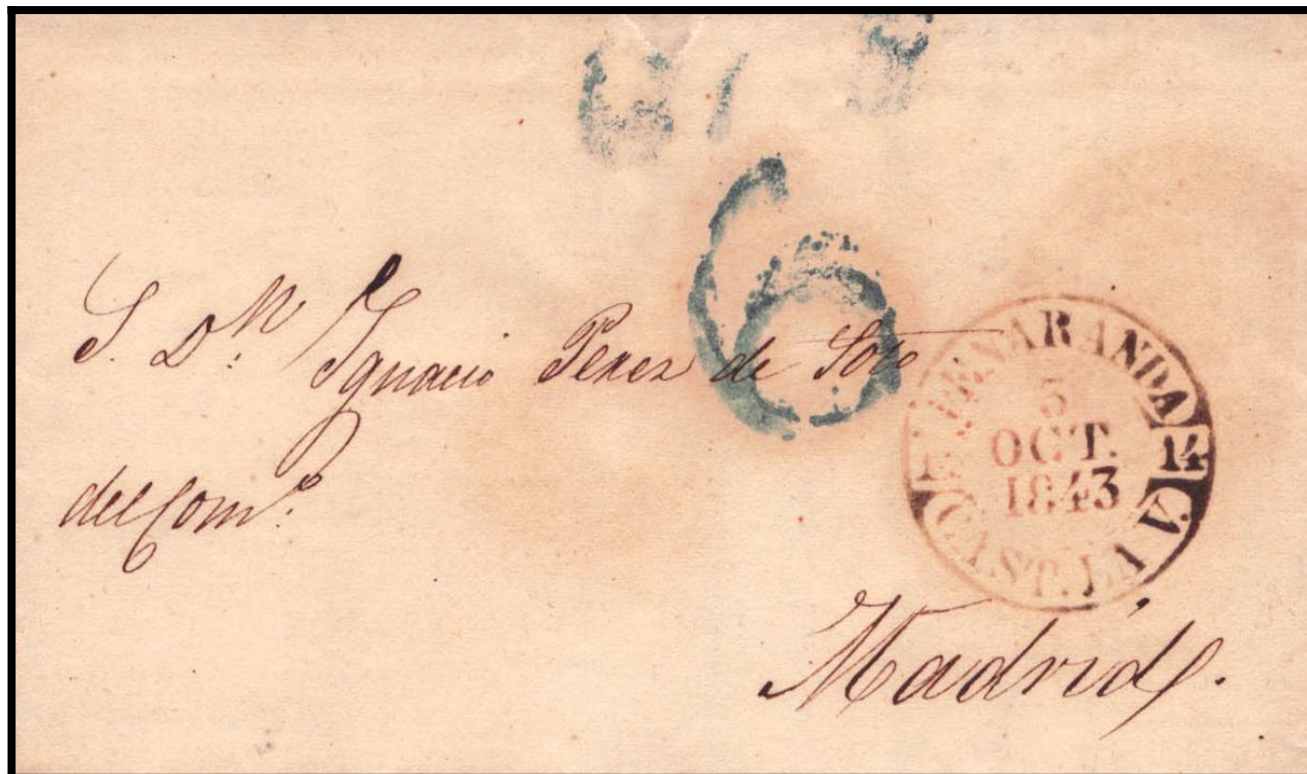 6
S. Dn. Ignacio Perez de Soto
del Como.
PEÑARANDA
14
3
OCT.
1843
CAST. LA V.
Madrid.